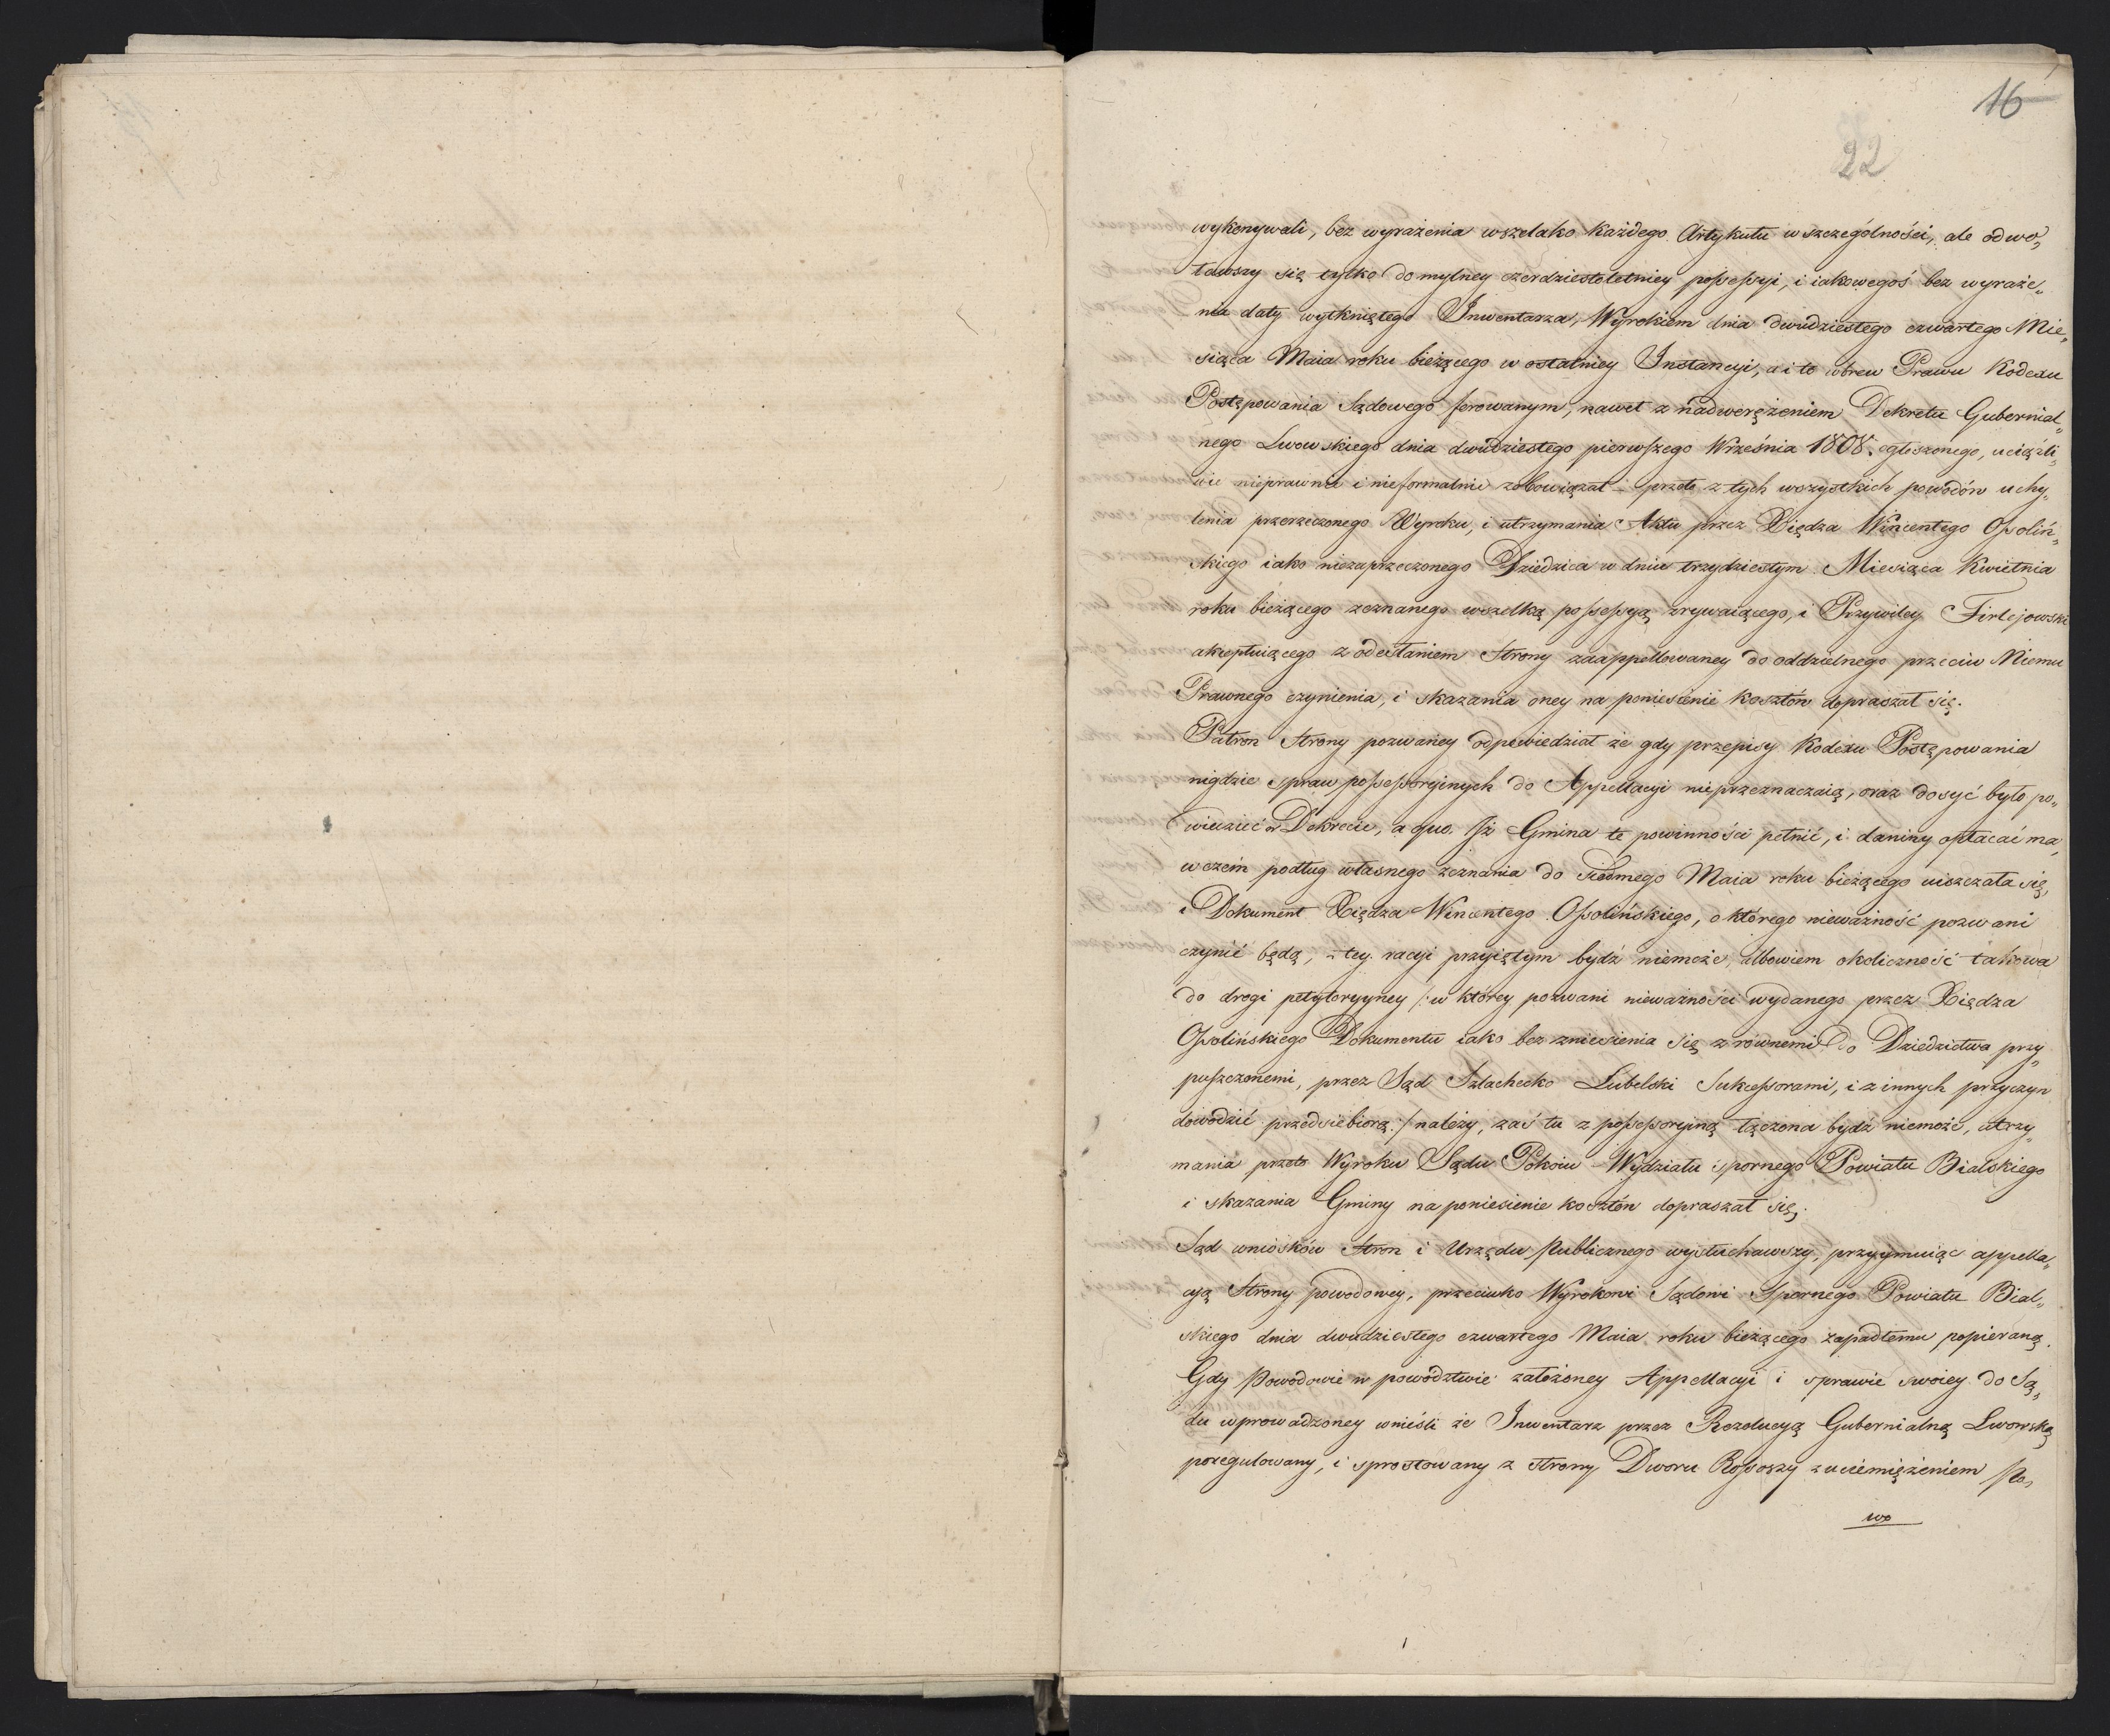 16
22
wykonywali, bez wyrażenia wszelako każdego Artykułu w szczególności, ale odwo„
ławszy się tylko do mylney czerdziestoletniey possessyi, i iakowegoś bez wyraże„
nia daty wytkniętego Inwentarza, Wyrokiem dnia dwudziestego czwartego Mie„
siąca Maia roku bieżącego w ostatniey Instancyi, a i to wbrew Prawu Kodexu
Postępowania Sądowego ferowanym, nawet z nadweręzeniem Dekretu Gubernial„
nego Lwowskiego dnia dwudziestego pierwszego Września 1808. ogłoszonego, uciążli„
wie nieprawnie i nieformalnie zobowiązał – przeto z tych wszystkich powodów uchy„
lenia przerzeczonego Wyroku, i utrzymania Aktu przez Xiędza Wincentego Ossoliń„
skiego iako niezaprzeczonego Dziedzica w dniu trzydziestym Miesiąca Kwietnia
roku bieżącego zeznanego wszelką possessyą zrywaiącego, i Przywiley Firlejowski
akceptuiącego z odesłaniem Strony zaappellowaney do oddzielnego przeciw Niemu
Prawnego czynienia, i skazania oney na poniesienie kosztów dopraszał się.
Patron Strony pozwaney odpowiedział że gdy przepisy Kodexu Postępowania
nigdzie spraw possessoryinych do Appellacyi nieprzeznaczaią, oraz dosyć było po„
wiedzieć w Dekrecie, a quo. Iż Gmina te powinności pełnić, i daniny opłacać ma,
w czem podług własnego zeznania do siedmego Maia roku bieżącego uiszczała się,
i Dokument Xiędza Wincentego Ossolińskiego, o którego nieważność pozwani
czynić będą, z tey racyi przyiętym bydź niemoże, albowiem okoliczność takowa
do drogi petytoryyney /: w którey pozwani nieważności wydanego przez Xiędza
Ossolińskiego Dokumentu iako bez zniesienia się z równemi do Dziedzictwa przy„
puszczonemi, przez Sąd Szlachecko Lubelski Sukcessorami, i z innych przyczyn
dowodzić przedsiebiorą :/ należy, zaś tu z possessoryiną łączona bydź niemoże, utrzy„
mania przeto Wyroku Sądu Pokoiu Wydziału spornego Powiatu Bialskiego
i skazania Gminy na poniesienie kosztów dopraszał się.
Sąd wniosków Stron i Urzędu Publicznego wysłuchawszy, przyymuiąc appella„
cyą Strony powodowey, przeciwko Wyrokowi Sądowi Spornego Powiatu Bial„
skiego dnia dwudziestego czwartego Maia roku bieżącego zapadłemu popieraną.
Gdy Powodowie w powództwie założoney Appellacyi i sprawie swoiey do Są„
du wprowadzoney wnieśli że Inwentarz przez Rezolucyą Gubernialną Lwowską
poregulowany, i sprostowany z strony Dworu Rossoszy z uciemiężeniem Po„
wo